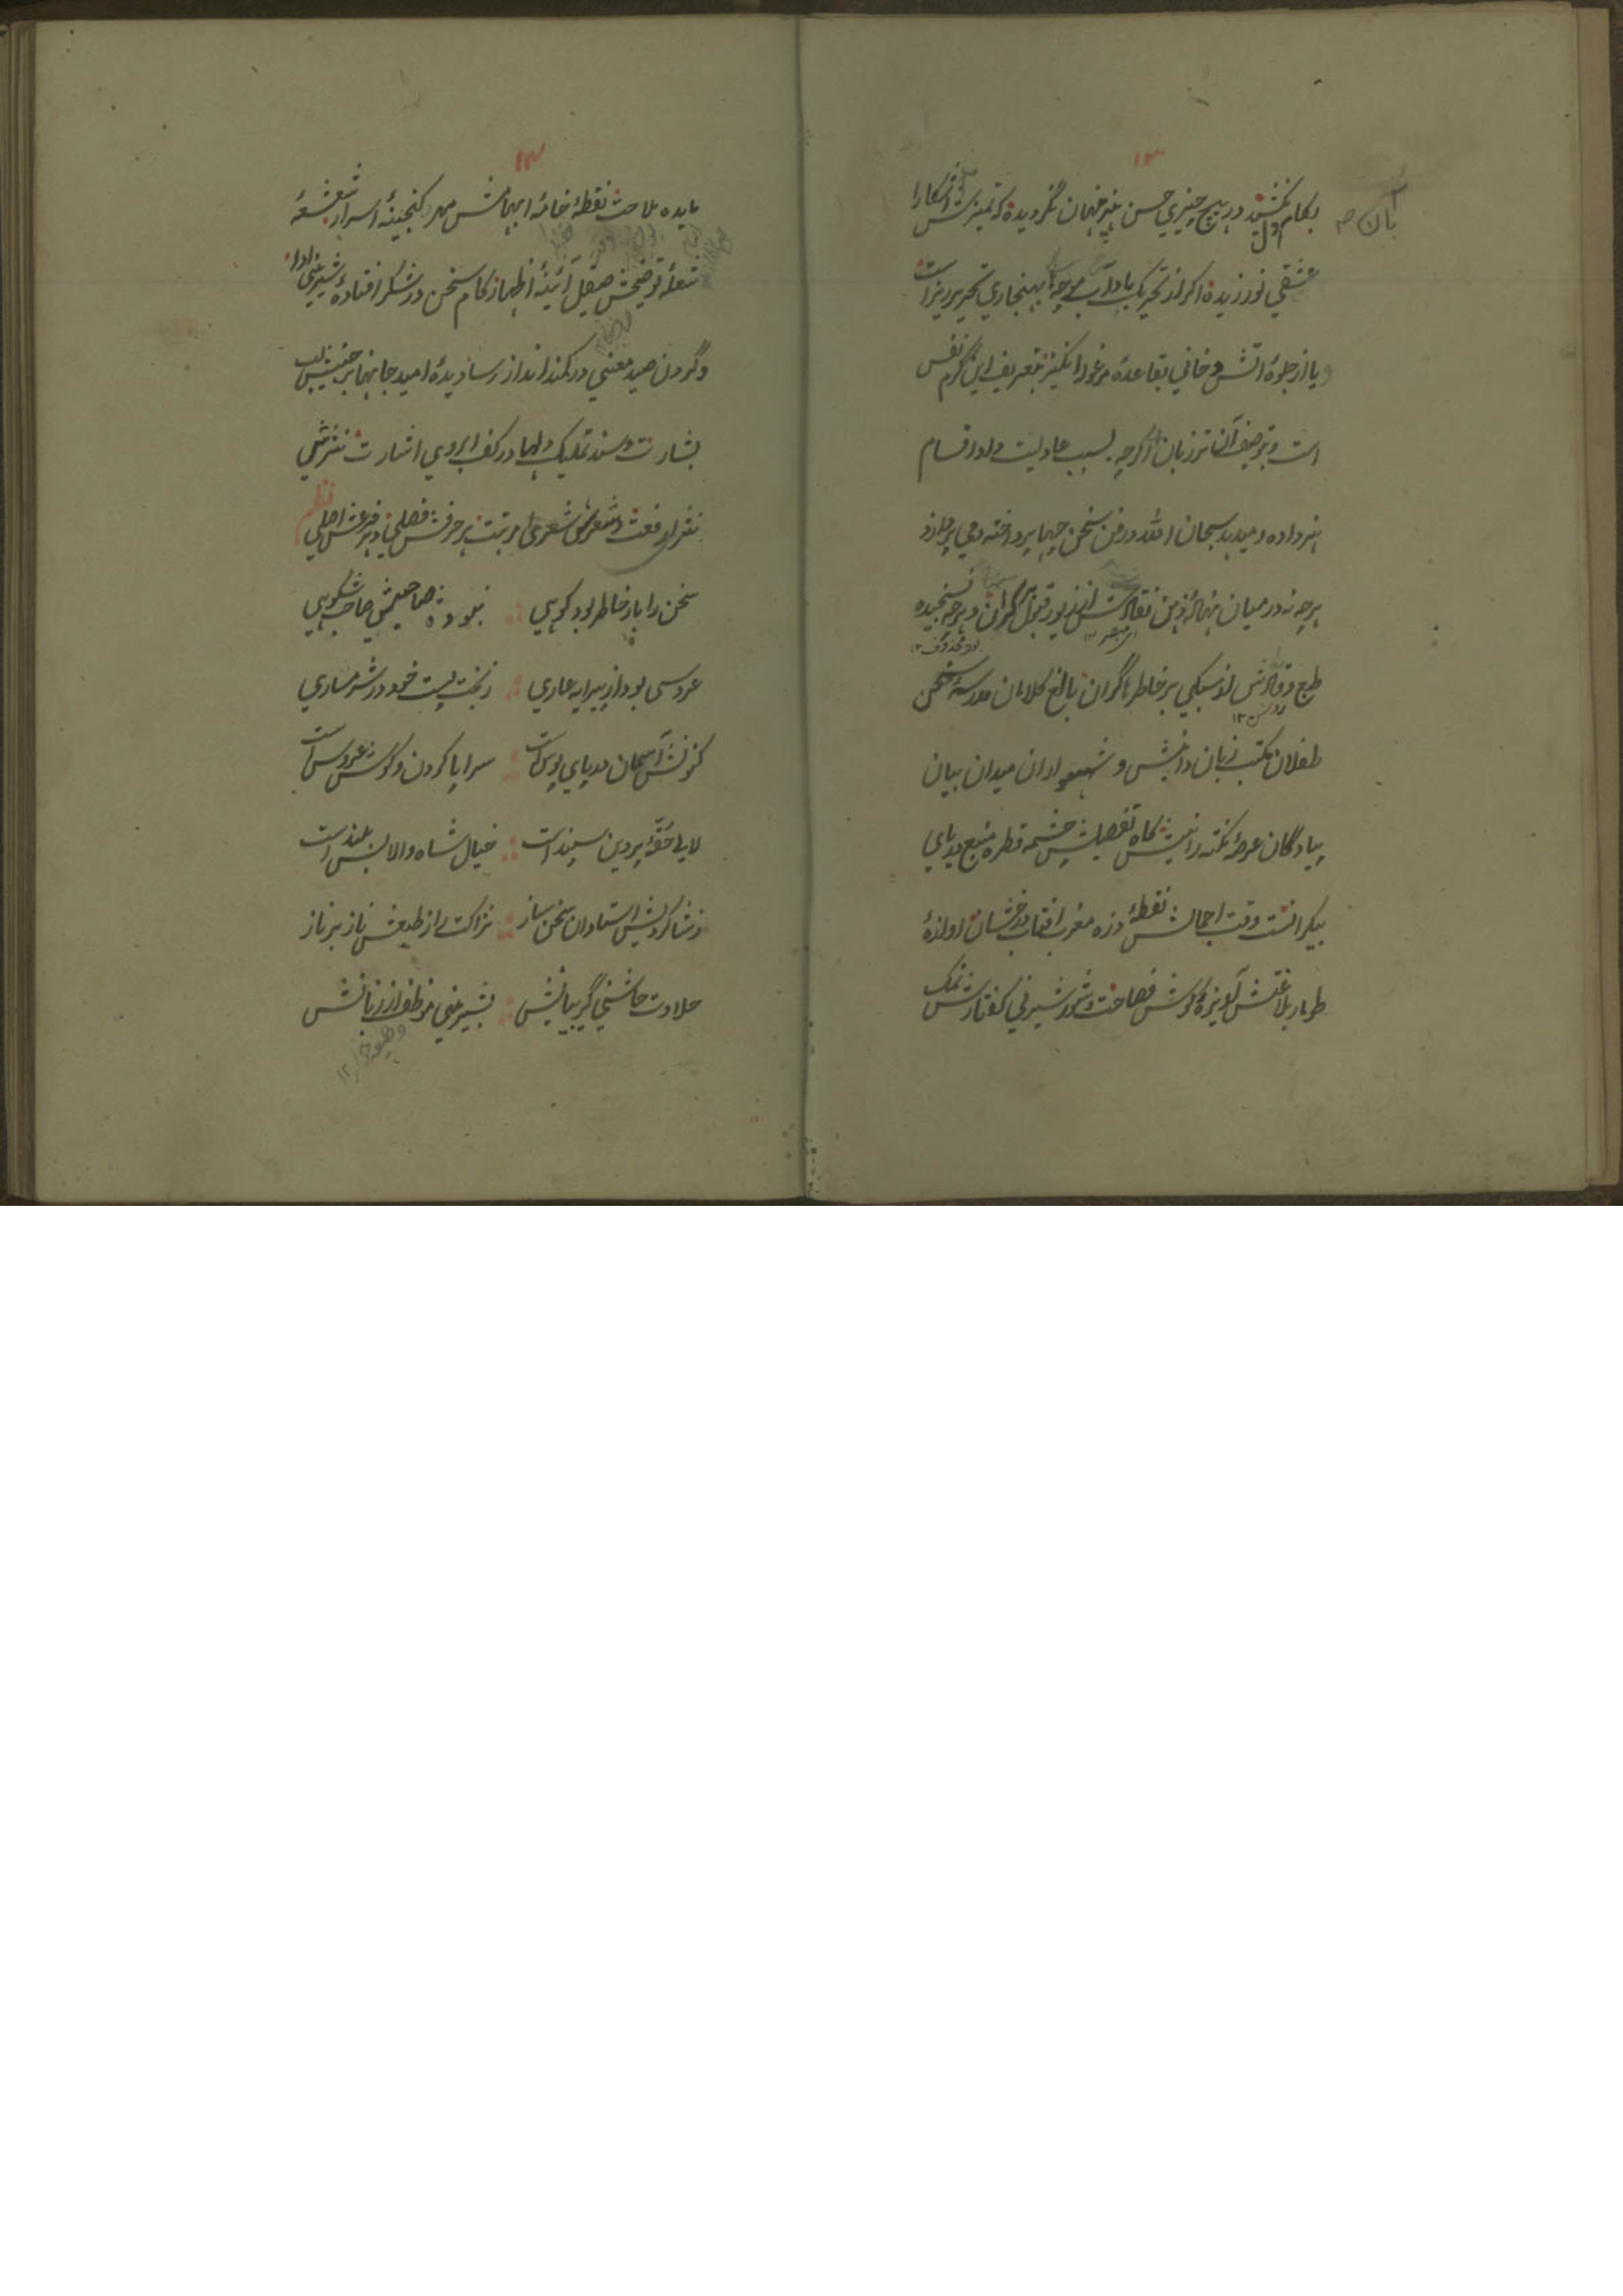 ۱۳
بکام نکشید در هیچ چیزی حسن هنر پنهان نگردیده که تمیزش آشکارا
عشقی نورزیده اگر از تحریک باد آب موجه بهنجاری تحریر ریز است
و یا از جلوه آتش دخانی بقاعده مرغوله انگیز بتعریف این گرم نفس
است و بتوصیف آن تر زبان اگرچه بسبب عادلیت داد اقسام
هنر داده و میدهد سبحان الله در فن سخن چها پرداخته و می پردازد
هرچه نه در میان نهاده ذهن نقادش از زیور قبول گران و هرچه نسنجیده
طبع وقادش از سبکی بر خاطرها گران بالغ کلامان مدرسه سخن
طفلان مکتب زبان دانیش و شهسواران میدان بیان
پیادگان عرصه نکته رانیش گاه تفصیلش چشمه قطره منبع دریای
بیکرانست وقت اجمالش نقطه ذره مغرب آفتاب درخشان اولنده
طومار بلاغتش آویزه گوش فصاحت و شور شیرینی گفتارش نمک
۱۴
مایده ملاحت نقطه خامه ابهامش مهر گنجینه اسرار شعشعه
شعله توضیحش صیقل آئینه اظهار کام سخن در شکر افتاده شیرینی ادا
و گردن صید معنی در کمند انداز رسا دیده امید جانها بر جنبش لب
بشارت و سند تملیک دلها در کف ابروی اشارت نثرش
نثره رفعت و شعرش شعری مرتبت هر حرفش فصلی و هر فرعش اصلی
نظم
سخن را بار خاطر بود کوهی نبوده صاحبش صاحب شکوهی
عروسی بود از پیرایه عاری ز بخت پست خود در شرمساری
کنونش آسمان در پای بوس است سراپا گردن و گوش عروس است
لالی حقه پروین سپند است خیال شاه والا بس بلند است
ز شاگردیش استادان سخن ساز نزاکت را از طبعش ناز بر ناز
حلاوت چاشنی گیر بیانش بشیرینی موظف از زبانش
وظیفه خوار ۱۲